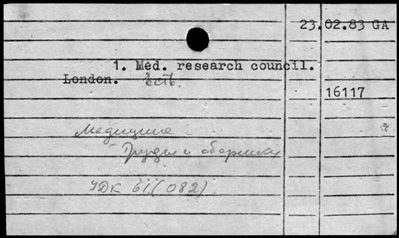 23.02.83 GA
1. Med. research council.
London. есть.
16117
Медицина
Труды и сборники
УДК 61(082)